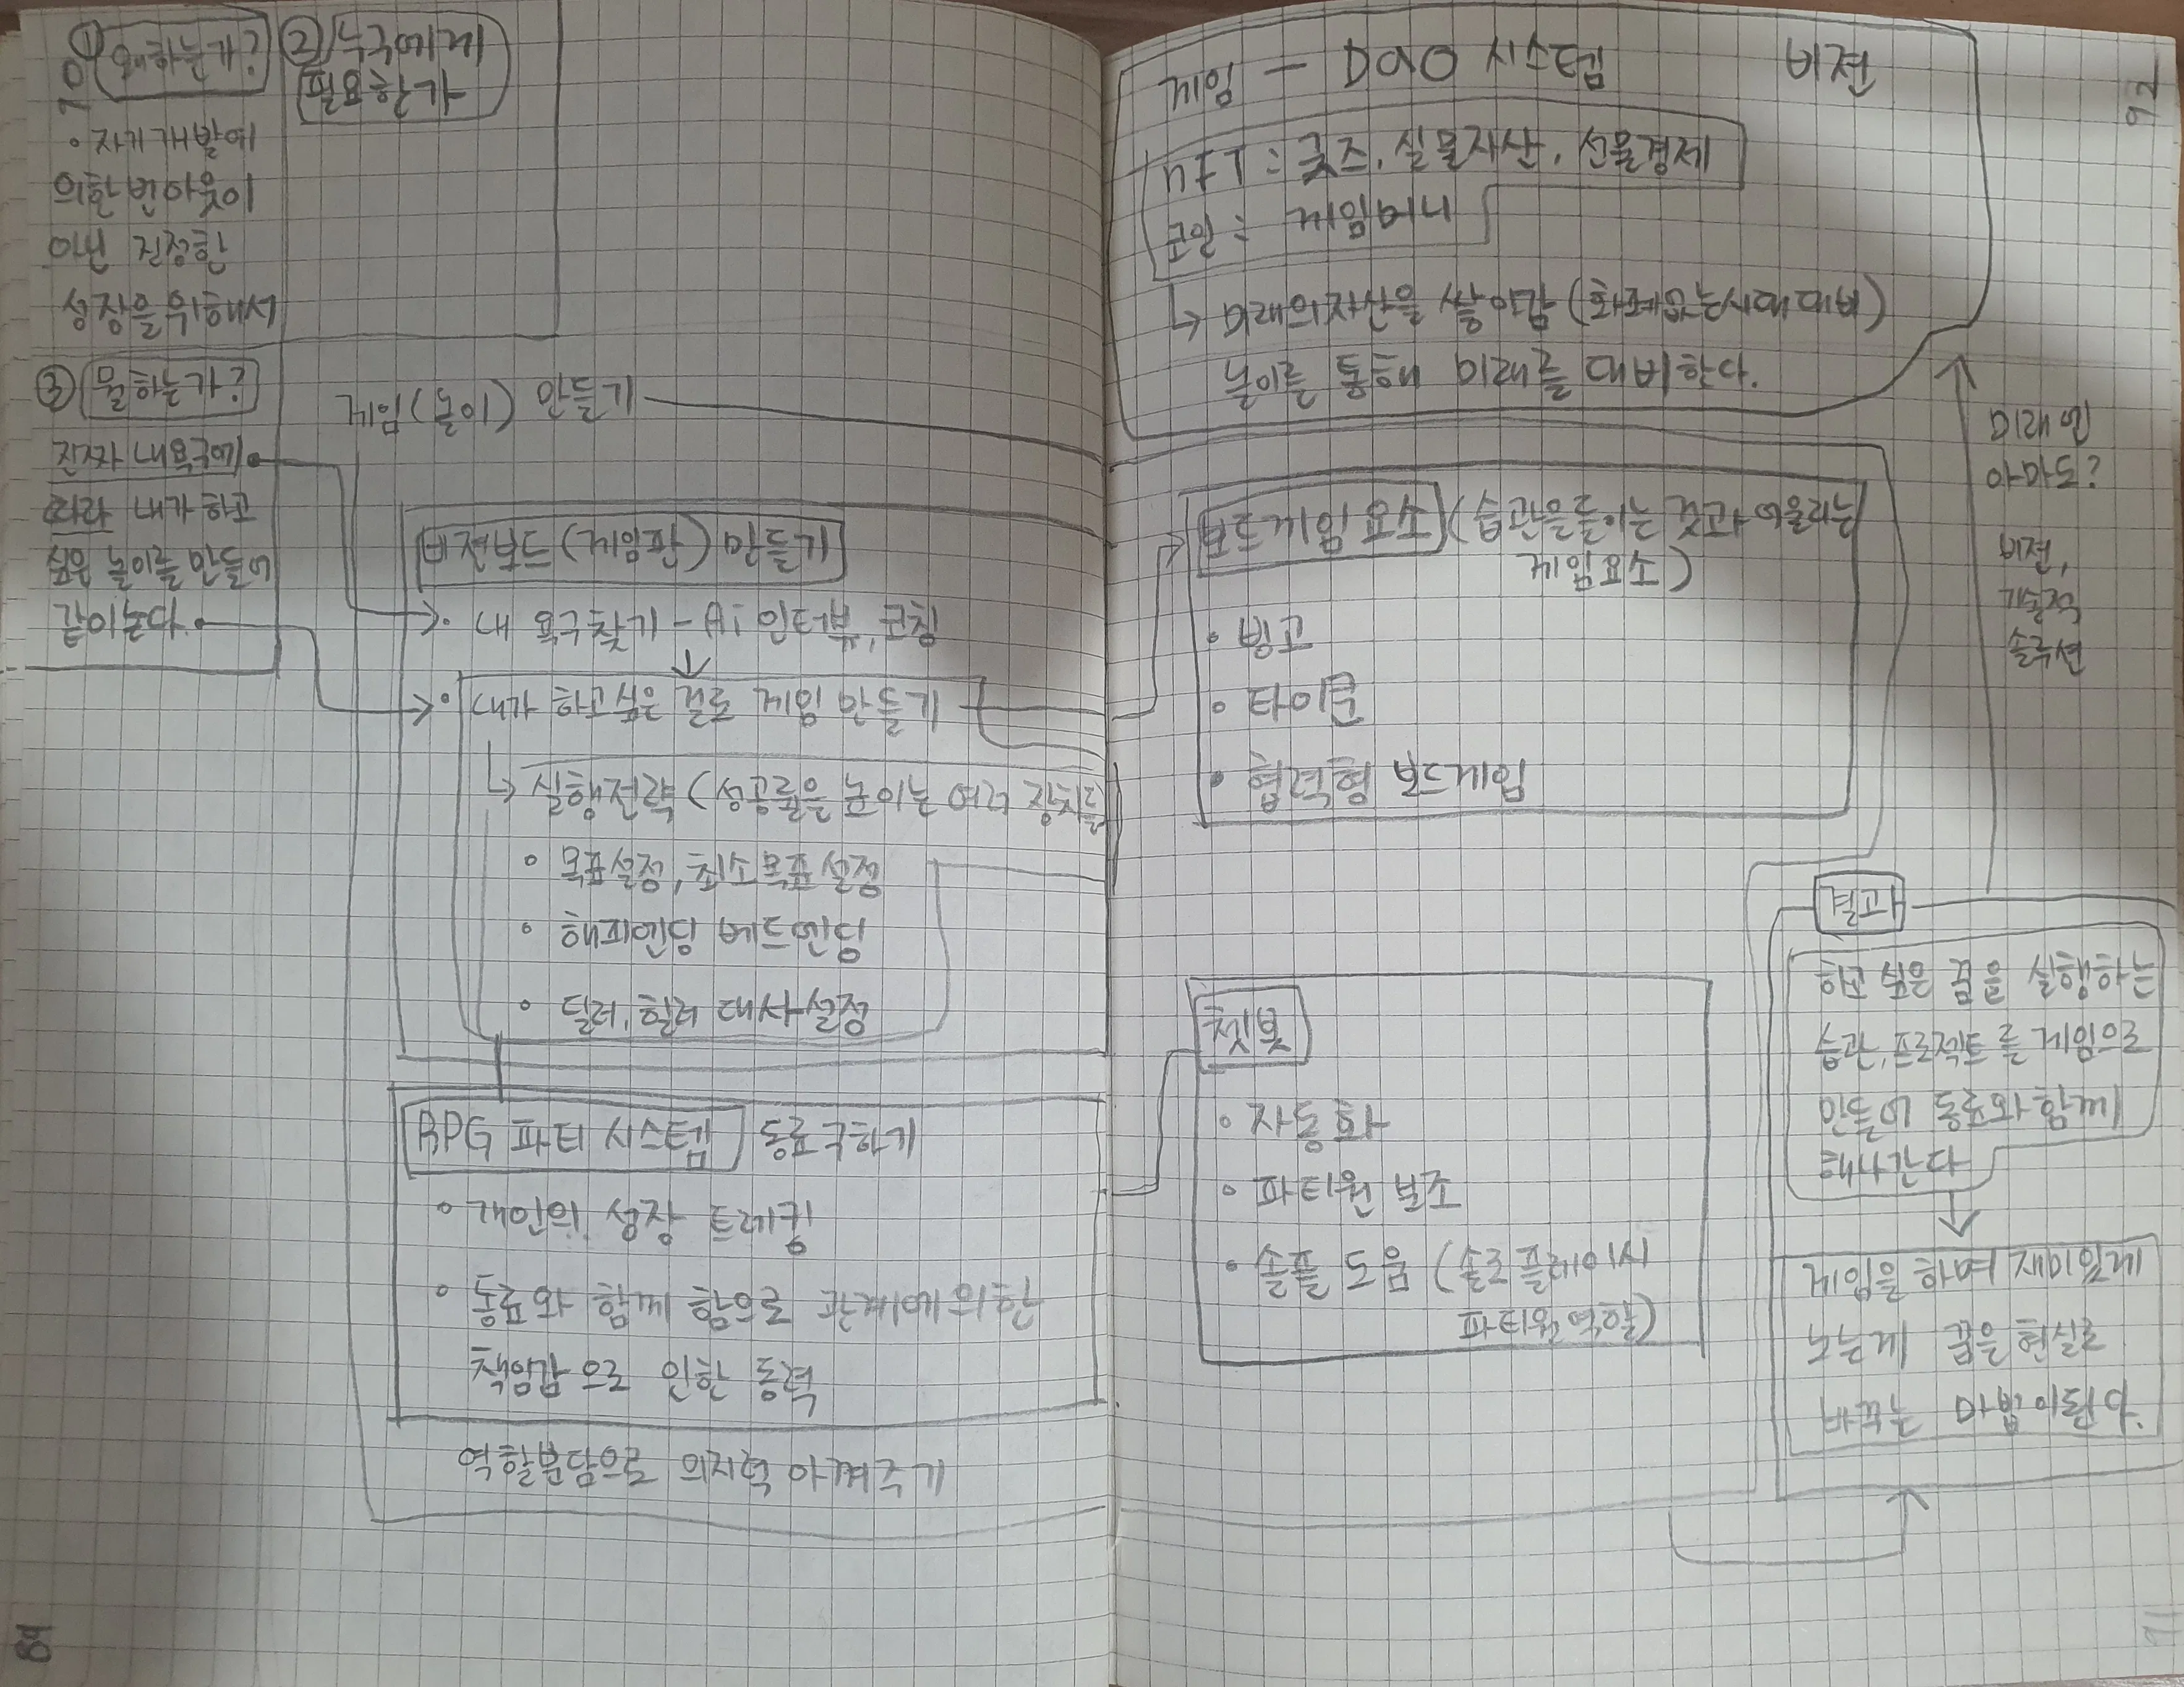 70
① 왜하는가?
② 누구에게
필요한가
• 자기개발에
의한 번아웃이
아닌 진정한
성장을 위해서
③ 뭘하는가?
진짜 내욕구에
따라 내가 하고
싶은 놀이를 만들어
같이논다.
게임(놀이) 만들기
비전보드(게임판) 만들기
• 내 욕구찾기 - Ai 인터뷰, 코칭
↓
• 내가 하고싶은 걸로 게임 만들기
↳ 실행전략 (성공률을 높이는 여러 장치들
• 목표설정, 최소목표 설정
• 해피엔딩 베드엔딩
• 딜러, 힐러 대사설정
RPG 파티 시스템 동료구하기
• 개인의 성장 트레킹
• 동료와 함께 함으로 관계에 의한
책임감으로 인한 동력
역할분담으로 의지력 아껴주기
69
72
게임 - DAO 시스템 비전
NFT = 굿즈, 실물자산, 선물경제
코인 = 게임머니
↳ 미래의 자산을 쌓아감 (화폐없는시대대비)
놀이를 통해 미래를 대비한다.
미래임
아마도?
비젼,
기술적
솔루션
보드게임 요소 (습관을들이는 것과 어울리는
게임요소)
• 빙고
• 타이쿤
• 협력형 보드게임
챗봇
• 자동화
• 파티원 보조
• 솔플 도움 (솔로 플레이시
파티원 역할)
결과
하고 싶은 꿈을 실행하는
습관, 프로젝트를 게임으로
만들어 동료와 함께
해나간다
↓
게임을 하며 재미있게
노는게 꿈을 현실로
바꾸는 마법이된다.
71